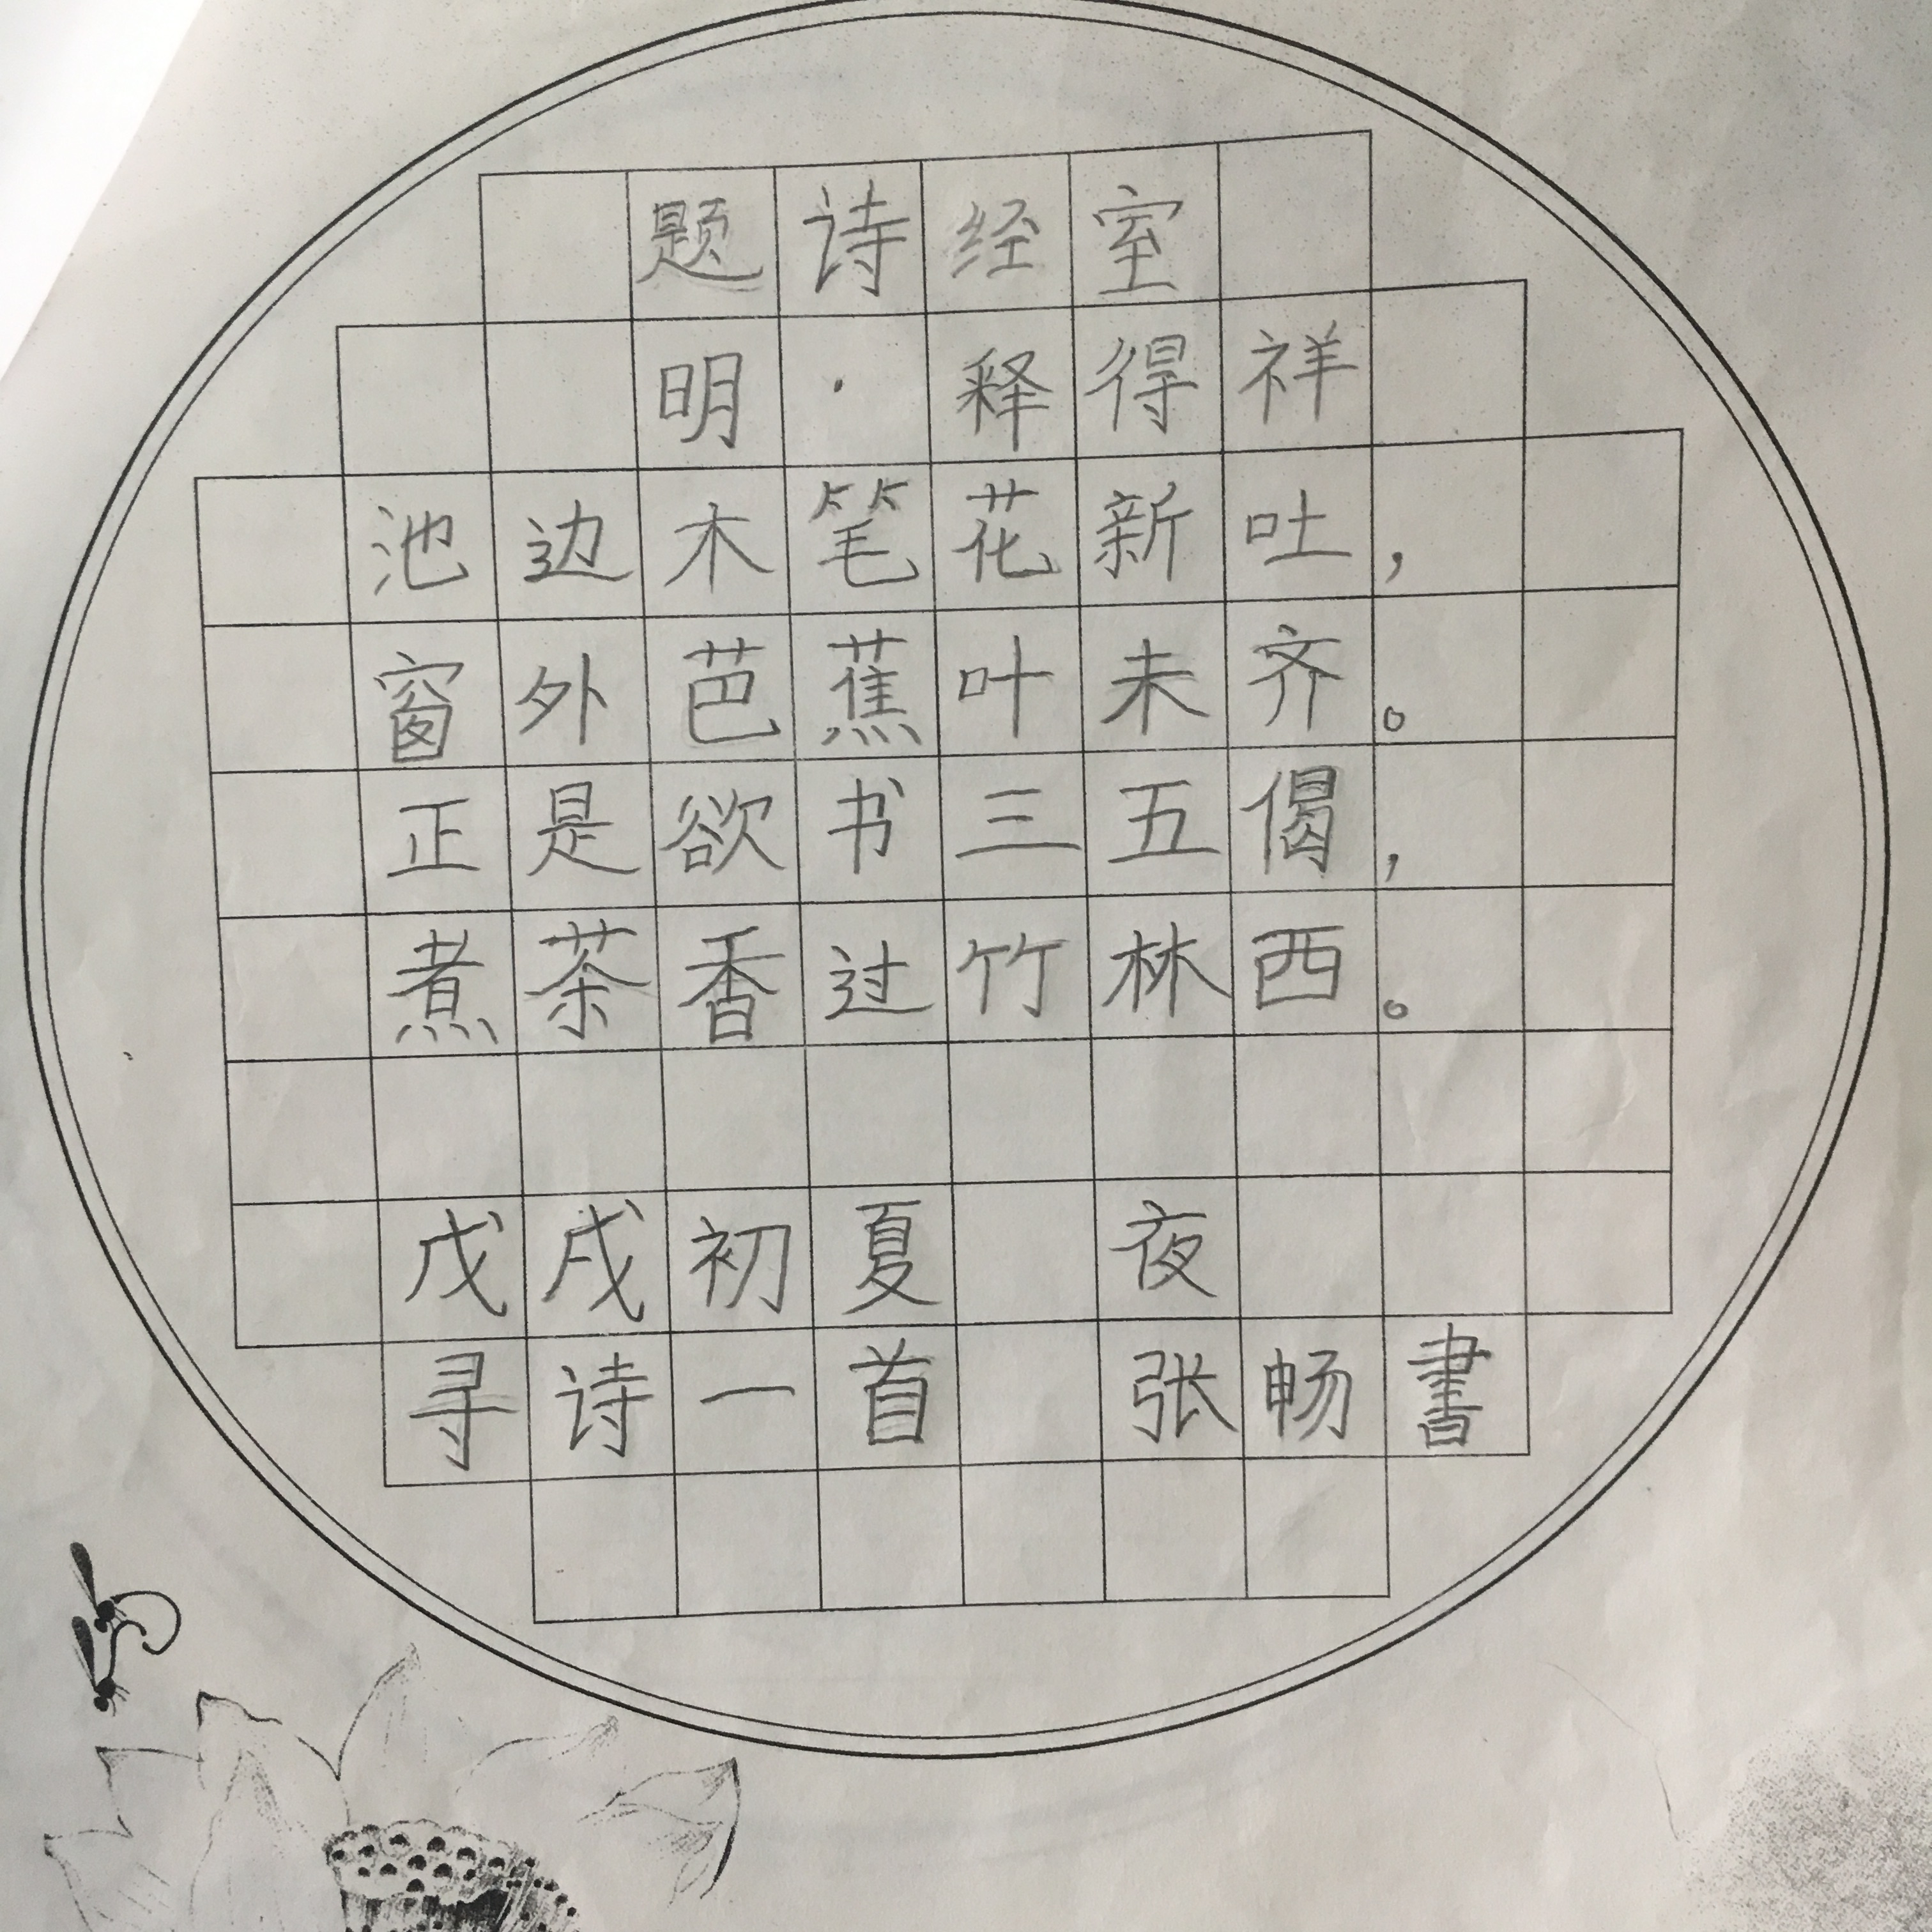 题诗经室
明·释得祥
池边木笔花新吐，
窗外芭蕉叶未齐。
正是欲书三五偈，
煮茶香过竹林西。
戊戌初夏 夜
寻诗一首 张畅書